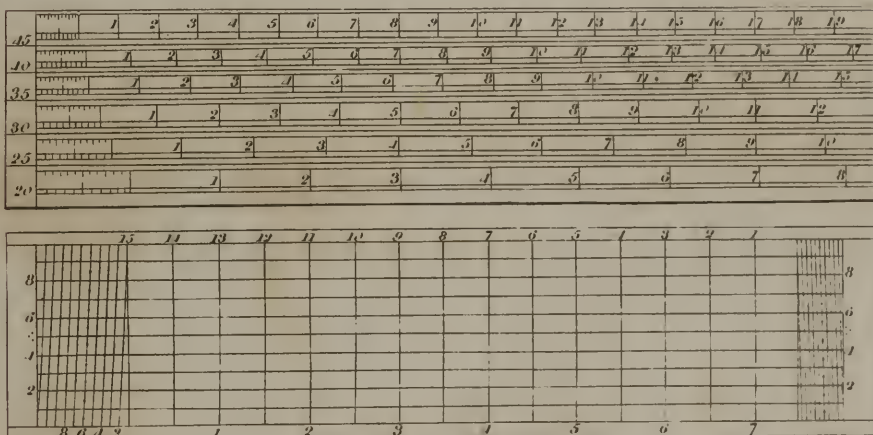 45 1 2 3 4 5 6 7 8 9 10 11 12 13 14 15 16 17 18 19
40 1 2 3 4 5 6 7 8 9 10 11 12 13 14 15 16 17
35 1 2 3 4 5 6 7 8 9 10 11 12 13 14 15
30 1 2 3 4 5 6 7 8 9 10 11 12
25 1 2 3 4 5 6 7 8 9 10
20 1 2 3 4 5 6 7 8
15 14 13 12 11 10 9 8 7 6 5 4 3 2 1
8 8
6 6
4 4
2 2
8 6 4 2 1 2 3 4 5 6 7